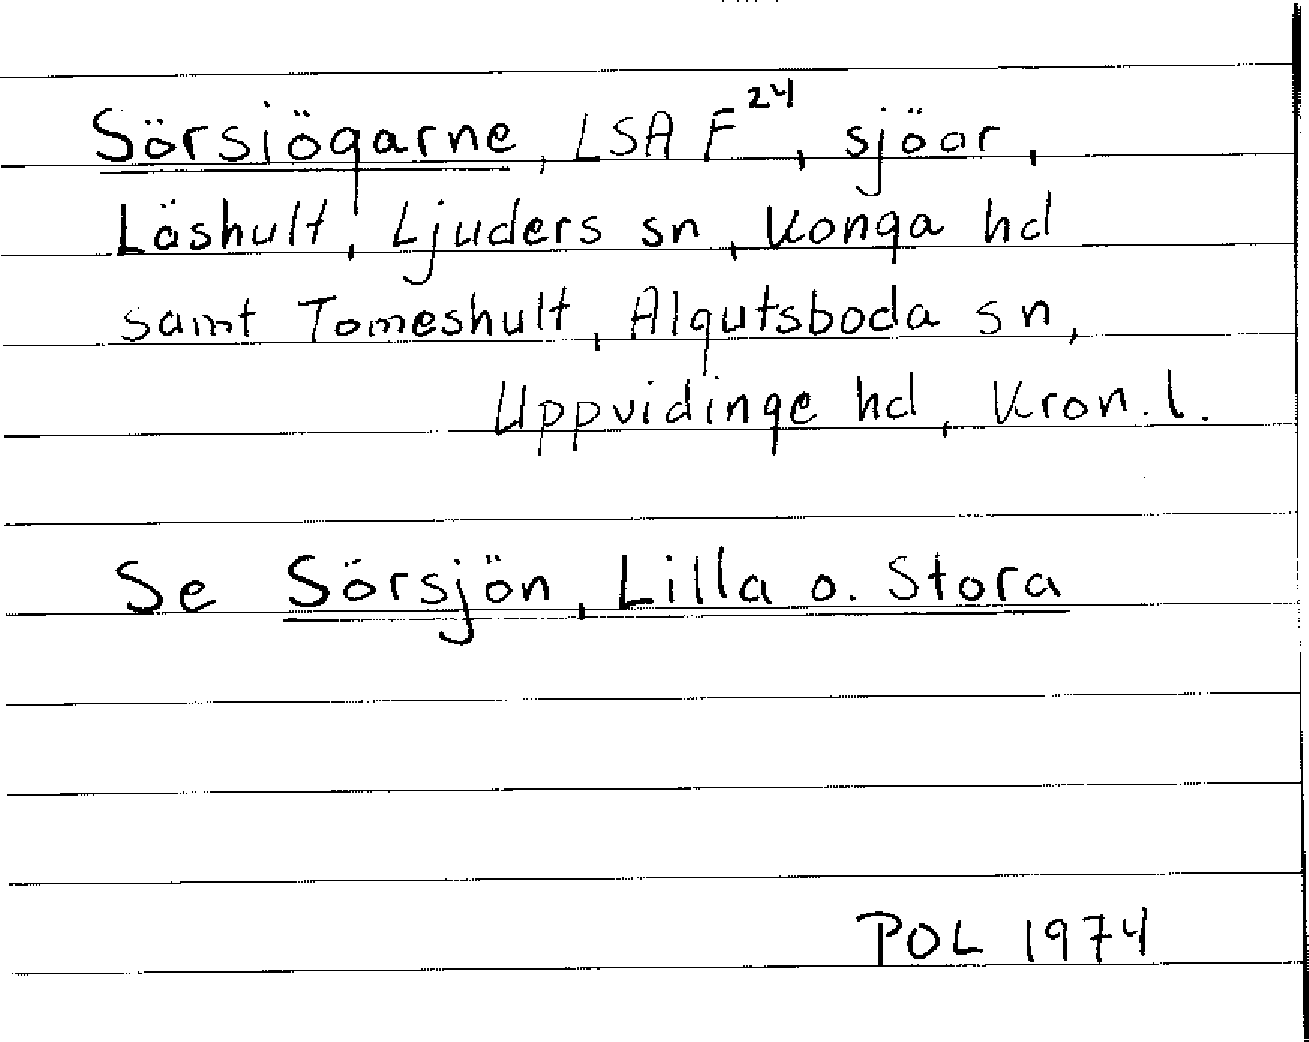 Sörsiögarne, LSA F²⁴, sjöar,
Låshult, Ljuders sn, Konga hd
samt Tomeshult, Algutsboda sn,
Uppvidinge hd, Kron. l.
Se Sörsjön, Lilla o. Stora
POL 1974